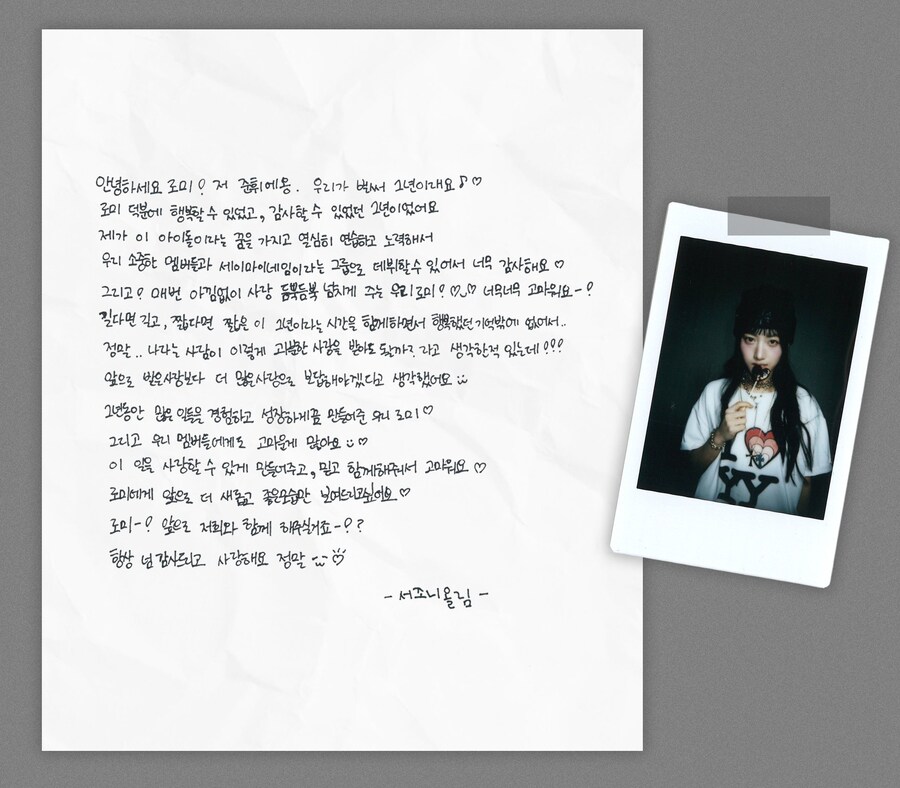 안녕하세요 로미? 저 준휘에옹. 우리가 벌써 1년이래요♪♡
로미 덕분에 행복할 수 있었고, 감사할 수 있었던 1년이었어요
제가 이 아이돌이라는 꿈을 가지고 열심히 연습하고 노력해서
우리 소중한 멤버들과 세이마이네임이라는 그룹으로 데뷔할 수 있어서 너무 감사해요 ♡
그리고? 매번 아낌없이 사랑 듬뿍듬뿍 넘치게 주는 우리 로미? 너무너무 고마워요-?
길다면 길고, 짧다면 짧은 이 1년이라는 시간을 함께하면서 행복했던 기억밖에 없어서..
정말.. 나라는 사람이 이렇게 과분한 사랑을 받아도 될까? 라고 생각한적 있는데???
앞으로 받은사랑보다 더 많은사랑으로 보답해야겠다고 생각했어요
1년동안 많은 일들을 경험하고 성장하게끔 만들어준 우리 로미♡
그리고 우리 멤버들에게도 고마운게 많아요 ♡
이 일을 사랑할 수 있게 만들어주고, 믿고 함께해줘서 고마워요 ♡
로미에게 앞으로 더 새롭고 좋은모습만 보여드리고싶어요♡
로미-? 앞으로 저희와 함께 해주실거죠-??
항상 넘 감사드리고 사랑해요 정말 ♡
- 서조니올림 -
YY